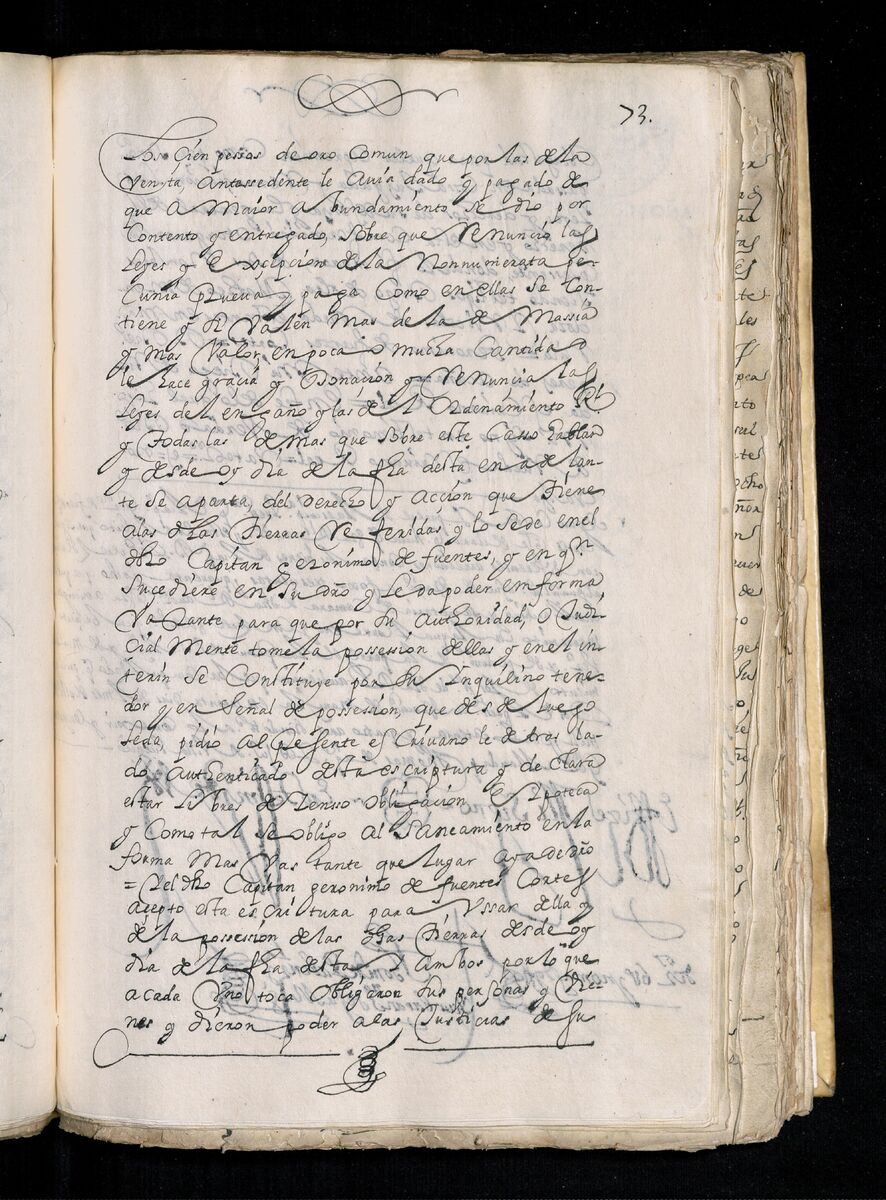 73.
Los çien pessos de oro comun que por las de la
Venta, antessedente le avia dado y pagado de
que a maior abundamiento se dio por
contento y entregado, sobre que renunçio las
leyes y exepçion de la nonnumerata pe-
cunia prueva y paga como en ellas se con-
tiene y si valen mas de la demassia
y mas valor, en poca o mucha cantidad
le haçe graçia y donaçion y renuncia las
leyes del engaño y las del ordenamiento Rl
y todas las demas que sobre este casso hablan
y desde oy dia de la fha desta en adelan-
te se aparta, del derecho y acçion que tiene
a las dhas tierras referidas y lo sede en el
dho Capitan geronimo de fuentes, y en qn
sucediere en su dro y le da poder en forma
vastante para que por su authoridad, o judi-
cial mente tome la possession dellas y en el in-
terin se constituye por su inquilino tene-
dor y en señal de possession, que desde luego
le da, pidio al presente escrivano le de tras la-
do, authenticado desta escriptura y declara
estar libres de senso obligaçion e ypoteca
y como tal se obligo al saneamiento en la
forma mas vastante que lugar aya de dro
= y el dho Capitan geronimo de fuentes Cortes
acepto esta escritura para vssar della y
de la possession de las dhas tierras desde oy
dia de la fha desta y ambos por lo que
a cada vno toca obligaron sus personas y vie-
nes y dieron poder a las justicias de su